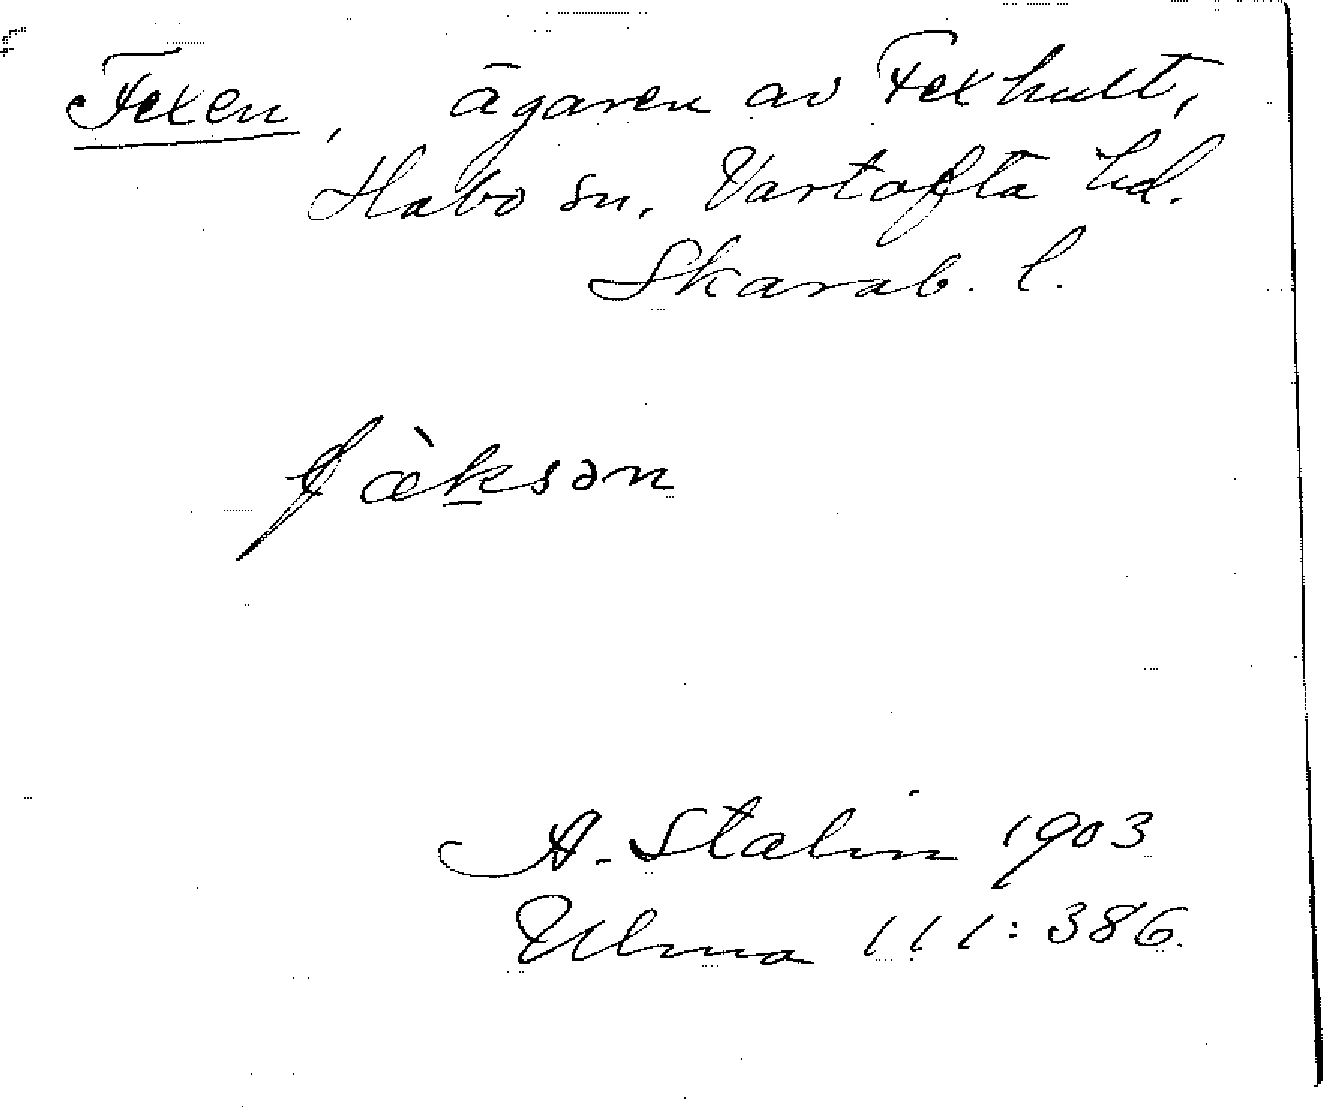 Fexen, ägaren av Fexhult,
Habo sn, Vartofta hd.
Skarab. l.
fæ̀ksən
A. Stalin 1903
Ulma 111:386.